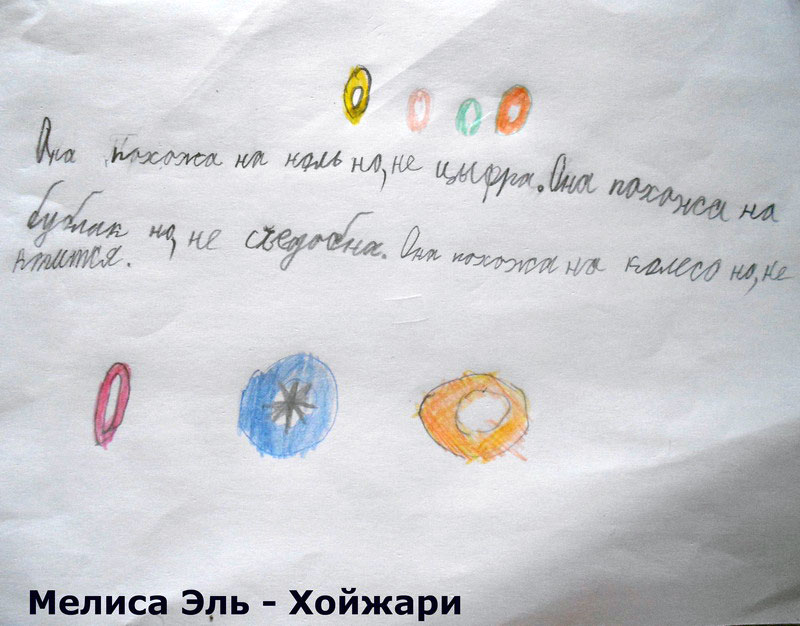 Она похожа на ноль но, не цыфра. Она похожа на
бублик но, не сьедобна. Она похожа на колесо но, не
катится.
Мелиса Эль - Хойжари